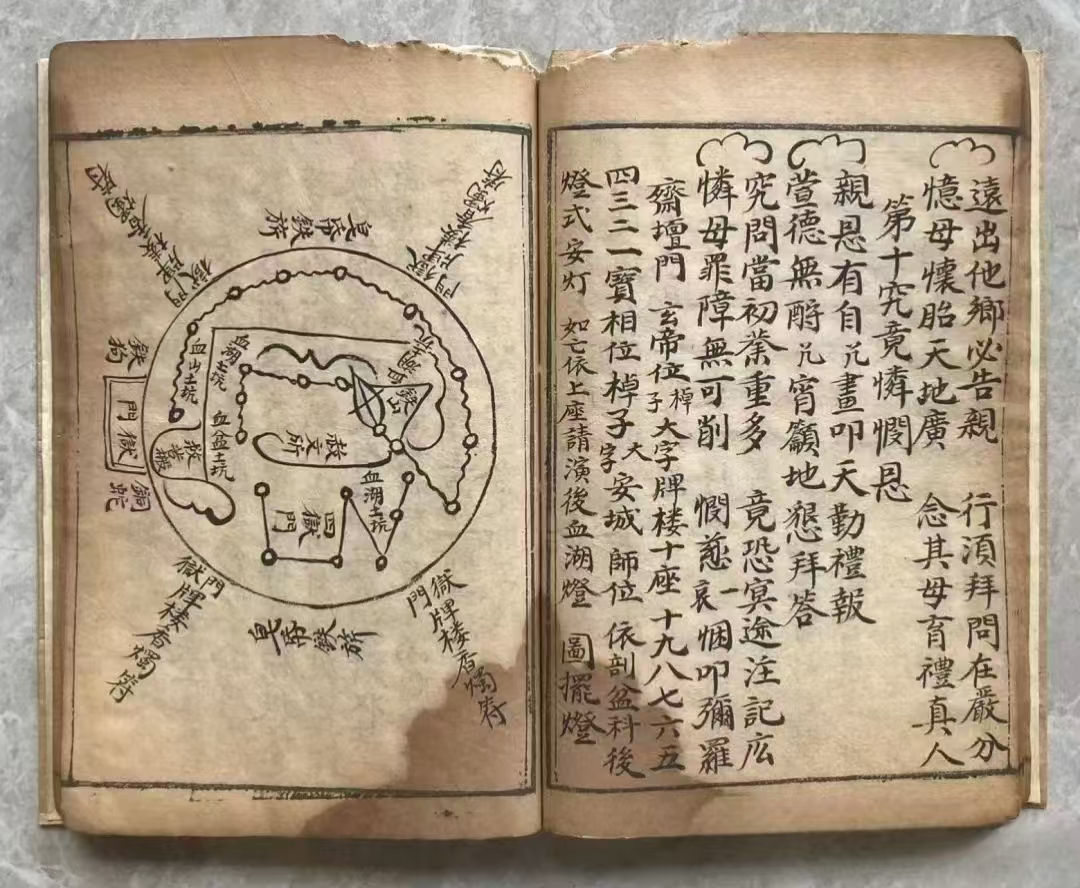 遠出他鄉必告親　行須拜問在嚴分
憶母懷胎天地廣　念其母育禮真人
第十究竟憐憫恩
親恩有自兊晝叩天勤禮報
萱德無酧兊宵籲地懇拜答
究問當初業重多　竟恐冥途注記庅
憐母罪障無可削　憫慈一哀悃叩彌羅
齋壇門　玄帝位棹子大字牌楼十座十九八七六五
四三二一寶相位棹子大字安城　師位　依剖盆科後
燈式安灯　如亡依上座請演後血湖燈　圖擺燈
獄門
獄門
鉄狗
門獄
銅蛇
血山土坑
血湖土坑
血盆土坑
救苦船
赦文所
四獄門
血湖土坑
門獄牌楼香燭俯
獄門牌楼香燭俯